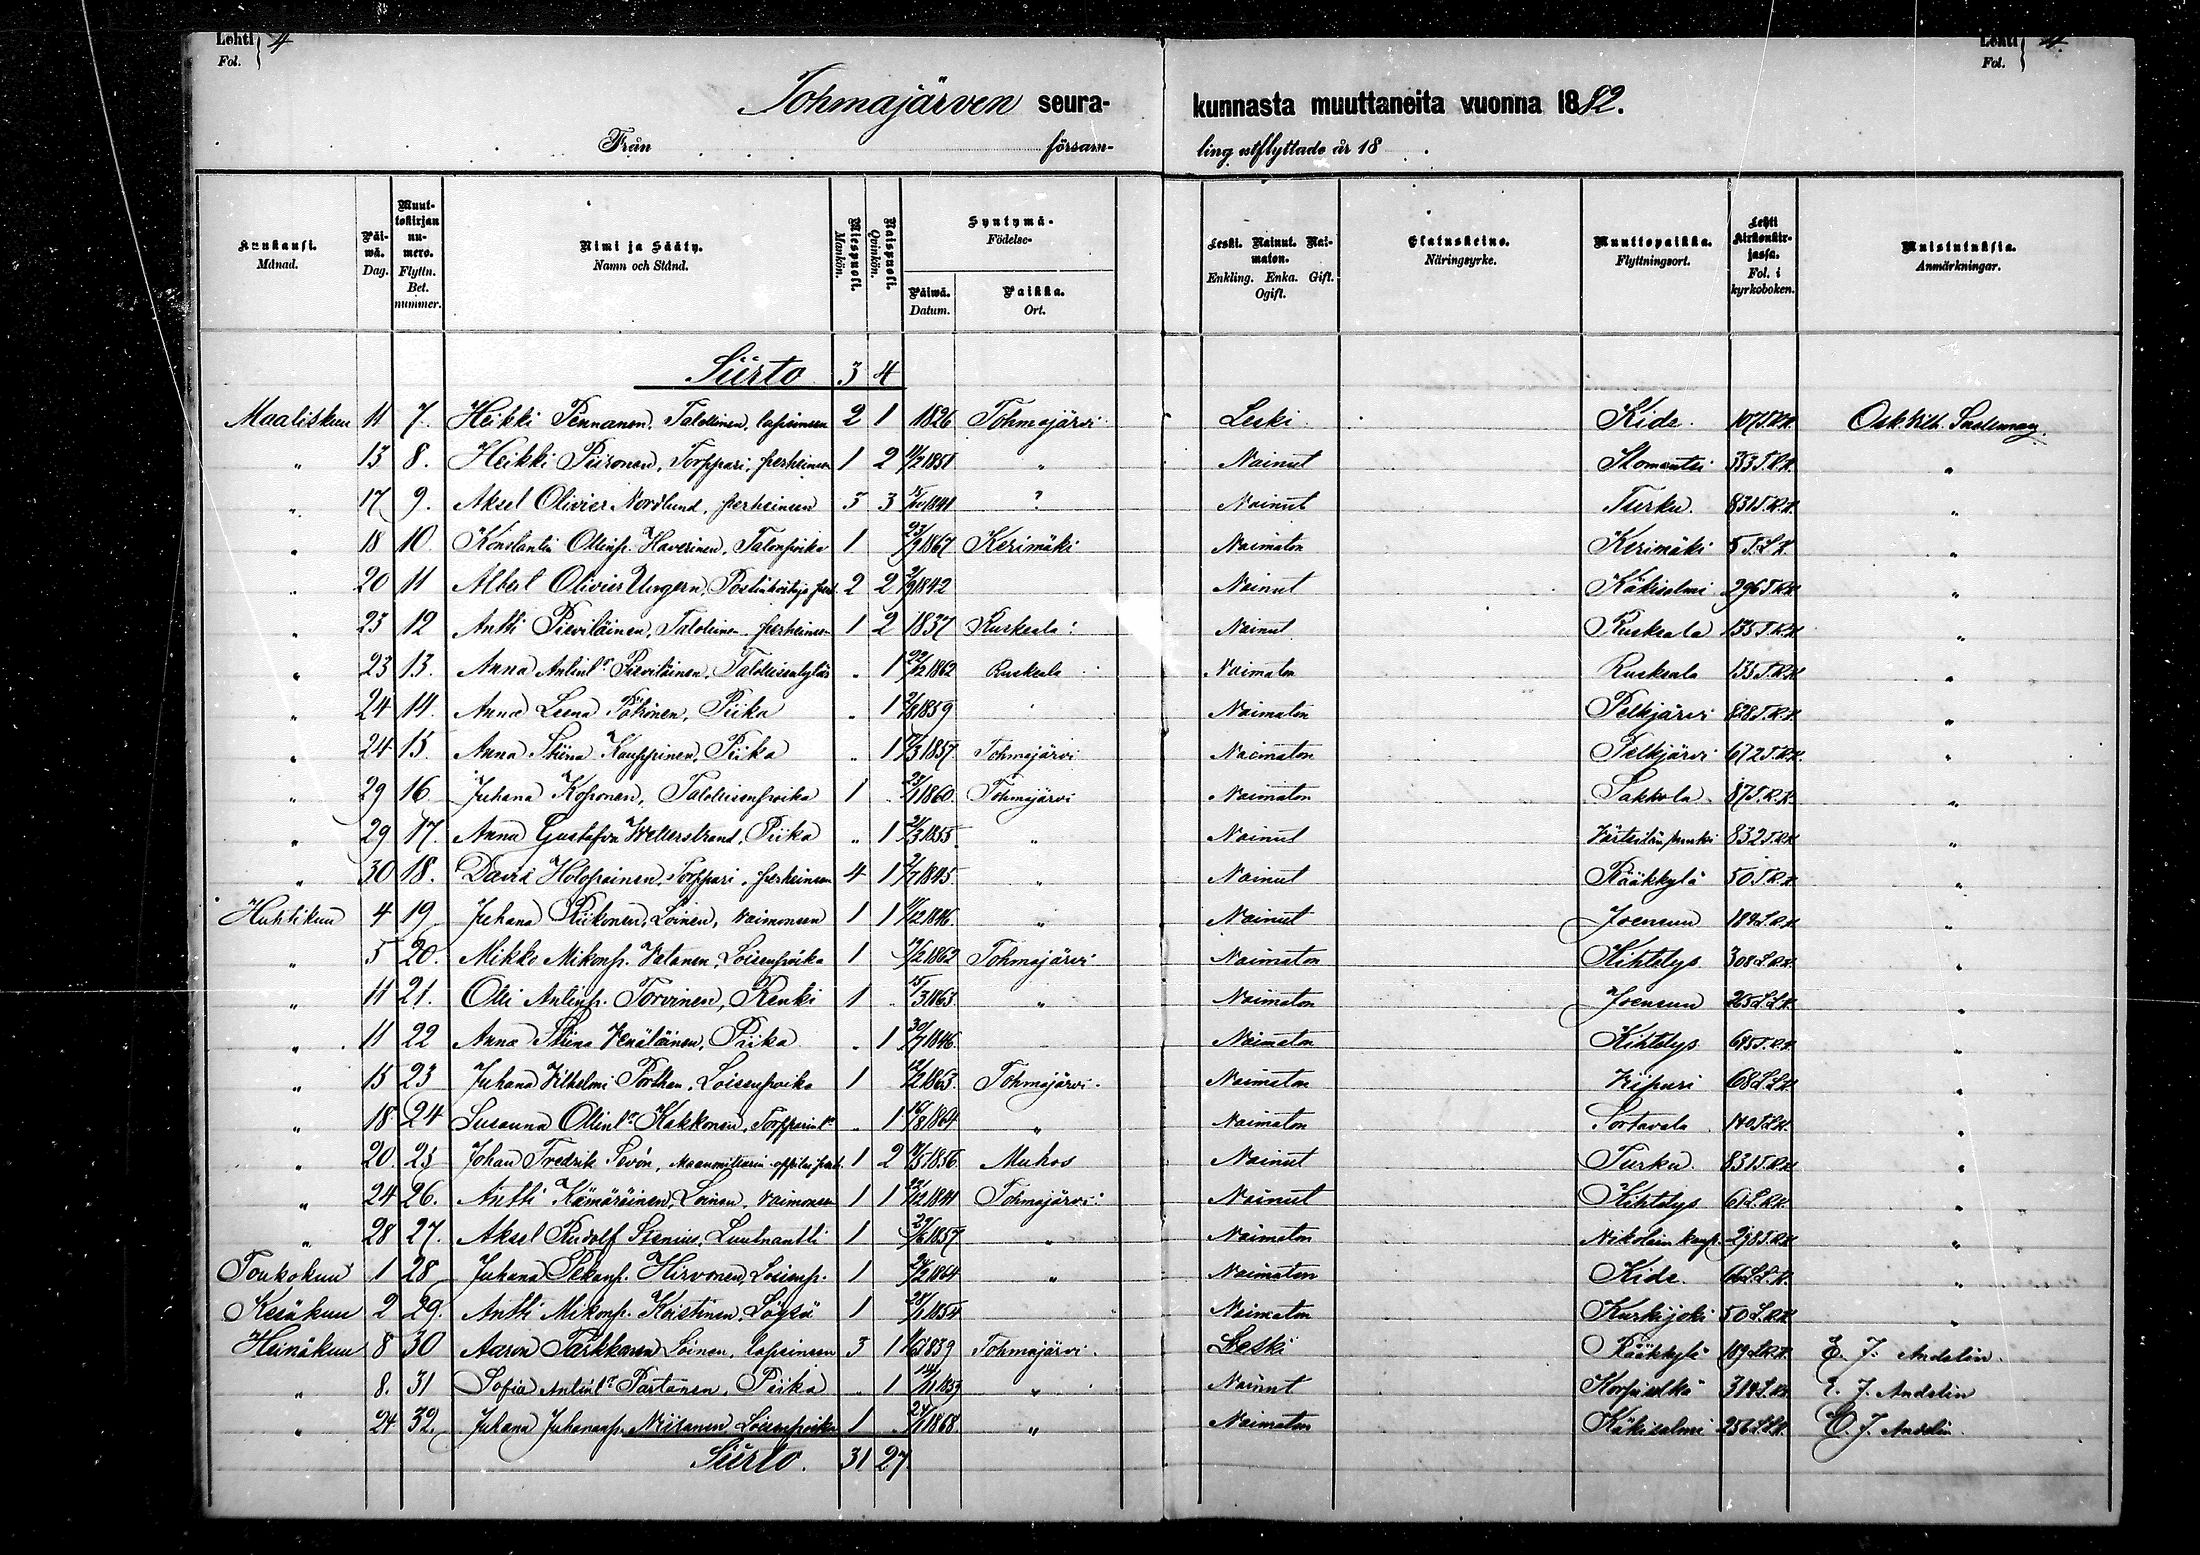 Lehti 4
Fol.
Lehti 4.
Fol.
Tohmajärven seura- kunnasta muuttaneita vuonna 1882.
Från försam- ling utflyttade år 18
Kuukausi. Månad.
Päiwä. Dag.
Muuttokirjan numero. Flyttn. Bet. nummer.
Nimi ja Sääty. Namn och Stånd.
Miespuoli. Mankön.
Naispuoli. Qvinkön.
Syntymä- Födelse-
Päiwä. Datum.
Paikka. Ort.
Leski. Nainut. Naimaton. Enkling. Enka. Gift. Ogift.
Elatuskeino. Näringsyrke.
Muuttopaikka. Flyttningsort.
Lehti Kirkonkirjassa. Fol. i kyrkoboken.
Muistutuksia. Anmärkningar.
Siirto 3 4
Maaliskuu 11 7. Heikki Pennanen, Talollinen, lapsineen 2 1 1826 Tohmajärvi Leski Kide 107 T.K.K.
" 13 8. Heikki Piironen, Torppari, perheineen 1 2 1851 " Nainut Ilomantsi 353 T.K.K. "
" 17 9. Aksel Olivier Nordlund, perheineen 3 1841 ? Nainut Turku. 831 T.K.K. "
" 18 10. Konstantin Ollinp. Haverinen, Talonpoika 1 23/9 1867 Kerimäki Naimaton Kerimäki 5 T.L.K. "
" 20 11 Albert Olivier Ungern, 2 2 1842 Nainut Käkisalmi 296 T.K.K. "
" 23 12 Antti Pieviläinen, Talollinen perheineen 1 2 1837 Ruskeala Nainut Ruskeala 135 T.K.K. "
" 23 13. Anna Antint:r Pieviläinen, " 1 22/12 1862 Ruskeala Naimaton Ruskeala 135 T.K.K. "
" 24 14. Anna Leena Pökönen, Piika " 1 1859 Naimaton Pelkjärvi 828 T.K.K. "
" 24 15. Anna Stiina Kauppinen, Piika " 1 1857. Tohmajärvi Naimaton Pelkjärvi 672 T.K.K. "
" 29 16 Juhana Koponen, Talollisenpoika 1 " 23/1 1860. Tohmajärvi Naimaton Sakkola 87 T.K.K. "
" 29 17. Anna Gustafva Wetterstrand, Piika " 1 1855 " Nainut 832 T.K.K. "
" 30 18. David Holopainen, Torppari, perheineen 4 1 1845. " Nainut Rääkkylä 50 T.K.K. "
Huhtikuu 4 19 Juhana Riikonen, Loinen, vaimoneen 1 1 1846. " Nainut Joensuu 184 L.K.K. "
" 5 20. Mikko Mikonp. Vatanen, Loisenpoika 1 1862 Tohmajärvi Naimaton Kihtelys 308 L.K.K. "
" 11 21. Olli Antinp. Torvinen, Renki 1 " 15/3 1863. " Naimaton Joensuu 265 L.L.K. "
" 11 22 Anna Stiina Venäläinen, Piika " 1 30/7 1846. Naimaton Kihtelys 645 T.K.K. "
" 15 23 Juhana Vilhelmi Porthen, Loisenpoika 1 1863. Tohmajärvi Naimaton Viipuri 68 L.L.K. "
" 18. 24 Susanna Ollint:r Kakkonen, Torpparint:r " 1 16/8 1864 " Naimaton Sortavala 140 T.L.K. "
" 20. 25 Johan Fredrik Sovón, 1 2 1856 Muhos Nainut Turku. 831 T.K.K. "
" 24 26. Antti Kämäräinen, Loinen, vaimoneen 1 1 22/12 1841 Tohmajärvi Nainut Kihtelys 61 L.K.K. "
" 28 27. Aksel Rudolf Stenius, Luutnantti 1 29/6 1857 " Naimaton 298 T.K.K. "
Toukokuu 1 28 Juhana Pekanp. Hirvonen, Loisenp. 1 1864 " Naimaton Kide 66 L.L.K. "
Kesäkuu 2 29. Antti Mikonp. Koistinen, Löysä 1 1854 Naimaton Kurkijoki 50 L.K.K. "
Heinäkuu 8 30 Aaron Parkkonen, Loinen, lapsineen 3 1 1839 Tohmajärvi Leski Rääkkylä 189 L.K.K. E. J. Andelin.
" 8. 31 Sofia Antint:r Partanen, Piika " 1 " Nainut Korpiselkä 314 L.K. E. J. Andelin
" 24 32. Juhana Juhananp. Niiranen, Loisenpoika 1 " 1868. " Naimaton Käkisalmi 256 L.L.K. E. J. Andelin
Siirto. 31 27